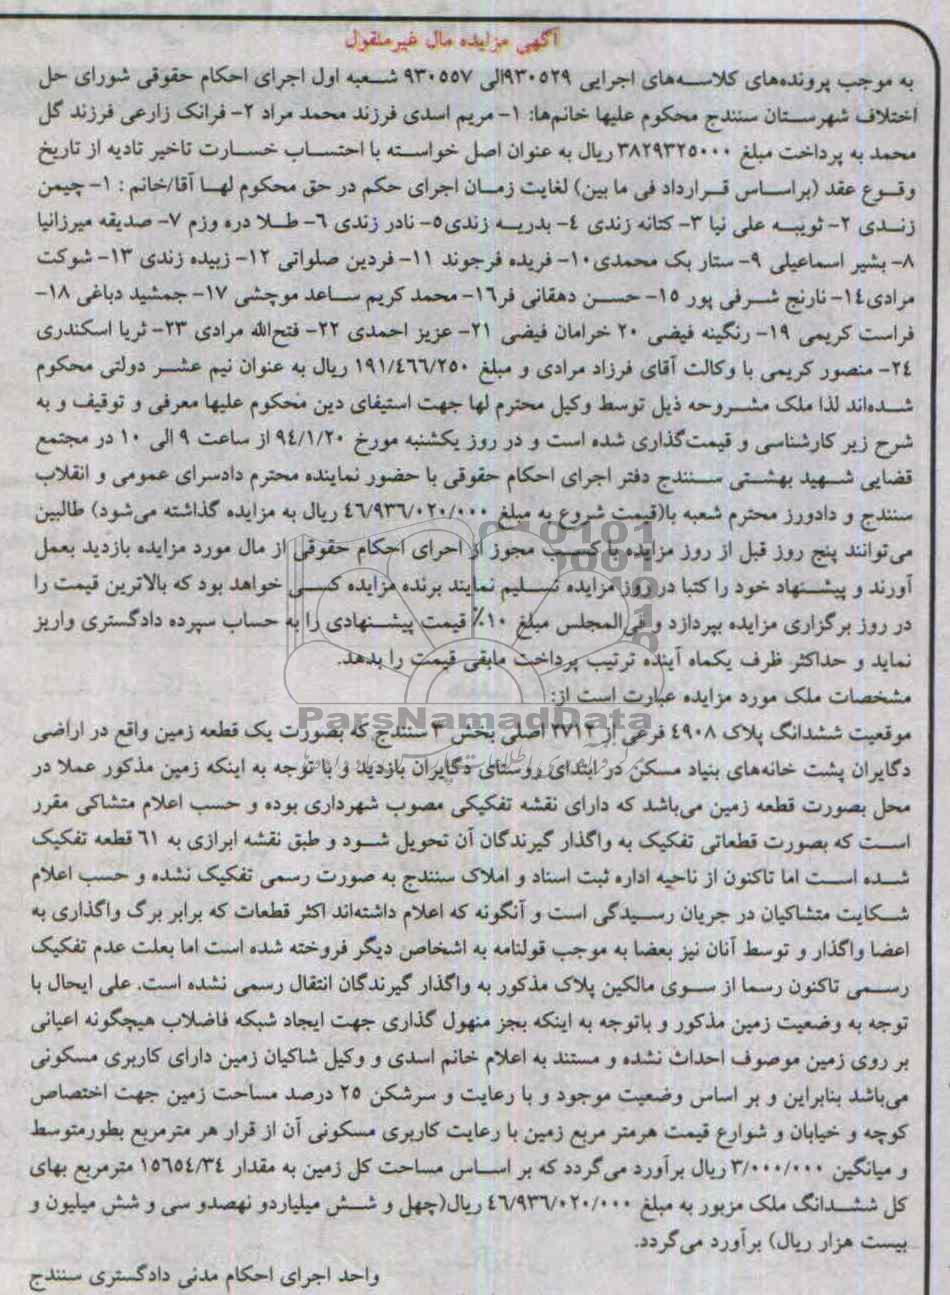 آگهی مزایده مال غیرمنقول
به موجب پرونده‌های کلاسه‌های اجرایی ۹۳۰۵۲۹الی ۹۳۰۵۵۷ شعبه اول اجرای احکام حقوقی شورای حل
اختلاف شهرستان سنندج محکوم علیها خانم‌ها: ۱- مریم اسدی فرزند محمد مراد ۲- فرانک زارعی فرزند گل
محمد به پرداخت مبلغ ۳۸۲۹۳۲۵۰۰۰ ریال به عنوان اصل خواسته با احتساب خسارت تاخیر تادیه از تاریخ
وقوع عقد (براساس قرارداد فی ما بین) لغایت زمان اجرای حکم در حق محکوم لها آقا/خانم : ۱- چیمن
زندی ۲- ثویبه علی نیا ۳- کتانه زندی ٤- بدریه زندی۵- نادر زندی ٦- طلا دره وزم ۷- صدیقه میرزانیا
۸- بشیر اسماعیلی ۹- ستار بک محمدی۱۰- فریده فرجوند ۱۱- فردین صلواتی ۱۲- زبیده زندی ۱۳- شوکت
مرادی۱٤- نارنج شرفی پور ۱۵- حسن دهقانی فر۱٦- محمد کریم ساعد موچشی ۱۷- جمشید دباغی ۱۸-
فراست کریمی ۱۹- رنگینه فیضی ۲۰ خرامان فیضی ۲۱- عزیز احمدی ۲۲- فتح‌الله مرادی ۲۳- ثریا اسکندری
۲٤- منصور کریمی با وکالت آقای فرزاد مرادی و مبلغ ۱۹۱/٤٦٦/۲۵۰ ریال به عنوان نیم عشر دولتی محکوم
شده‌اند لذا ملک مشروحه ذیل توسط وکیل محترم لها جهت استیفای دین محکوم علیها معرفی و توقیف و به
شرح زیر کارشناسی و قیمت‌گذاری شده است و در روز یکشنبه مورخ ۹٤/۱/۲۰ از ساعت ۹ الی ۱۰ در مجتمع
قضایی شهید بهشتی سنندج دفتر اجرای احکام حقوقی با حضور نماینده محترم دادسرای عمومی و انقلاب
سنندج و دادورز محترم شعبه با(قیمت شروع به مبلغ ٤٦/۹۳٦/۰۲۰/۰۰۰ ریال به مزایده گذاشته می‌شود) طالبین
می‌توانند پنج روز قبل از روز مزایده با کسب مجوز از اجرای احکام حقوقی از مال مورد مزایده بازدید بعمل
آورند و پیشنهاد خود را کتبا در روز مزایده تسلیم نمایند برنده مزایده کسی خواهد بود که بالاترین قیمت را
در روز برگزاری مزایده بپردازد و فی‌المجلس مبلغ ۱۰٪ قیمت پیشنهادی را به حساب سپرده دادگستری واریز
نماید و حداکثر ظرف یکماه آینده ترتیب پرداخت مابقی قیمت را بدهد.
مشخصات ملک مورد مزایده عبارت است از:
ParsNamadData
موقعیت ششدانگ پلاک ٤۹۰۸ فرعی از ۲۷۱۲ اصلی بخش ۳ سنندج که بصورت یک قطعه زمین واقع در اراضی
دگایران پشت خانه‌های بنیاد مسکن در ابتدای روستای دگایران بازدید و با توجه به اینکه زمین مذکور عملا در
محل بصورت قطعه زمین می‌باشد که دارای نقشه تفکیکی مصوب شهرداری بوده و حسب اعلام متشاکی مقرر
است که بصورت قطعاتی تفکیک به واگذار گیرندگان آن تحویل شود و طبق نقشه ابرازی به ٦۱ قطعه تفکیک
شده است اما تاکنون از ناحیه اداره ثبت اسناد و املاک سنندج به صورت رسمی تفکیک نشده و حسب اعلام
شکایت متشاکیان در جریان رسیدگی است و آنگونه که اعلام داشته‌اند اکثر قطعات که برابر برگ واگذاری به
اعضا واگذار و توسط آنان نیز بعضا به موجب قولنامه به اشخاص دیگر فروخته شده است اما بعلت عدم تفکیک
رسمی تاکنون رسما از سوی مالکین پلاک مذکور به واگذار گیرندگان انتقال رسمی نشده است. علی ایحال با
توجه به وضعیت زمین مذکور و باتوجه به اینکه بجز منهول گذاری جهت ایجاد شبکه فاضلاب هیچگونه اعیانی
بر روی زمین موصوف احداث نشده و مستند به اعلام خانم اسدی و وکیل شاکیان زمین دارای کاربری مسکونی
می‌باشد بنابراین و بر اساس وضعیت موجود و با رعایت و سرشکن ۲۵ درصد مساحت زمین جهت اختصاص
کوچه و خیابان و شوارع قیمت هرمتر مربع زمین با رعایت کاربری مسکونی آن از قرار هر مترمربع بطورمتوسط
و میانگین ۳/۰۰۰/۰۰۰ ریال برآورد می‌گردد که بر اساس مساحت کل زمین به مقدار ۱۵٦۵٤/۳٤ مترمربع بهای
کل ششدانگ ملک مزبور به مبلغ ٤٦/۹۳٦/۰۲۰/۰۰۰ ریال(چهل و شش میلیاردو نهصدو سی و شش میلیون و
بیست هزار ریال) برآورد می‌گردد.
واحد اجرای احکام مدنی دادگستری سنندج